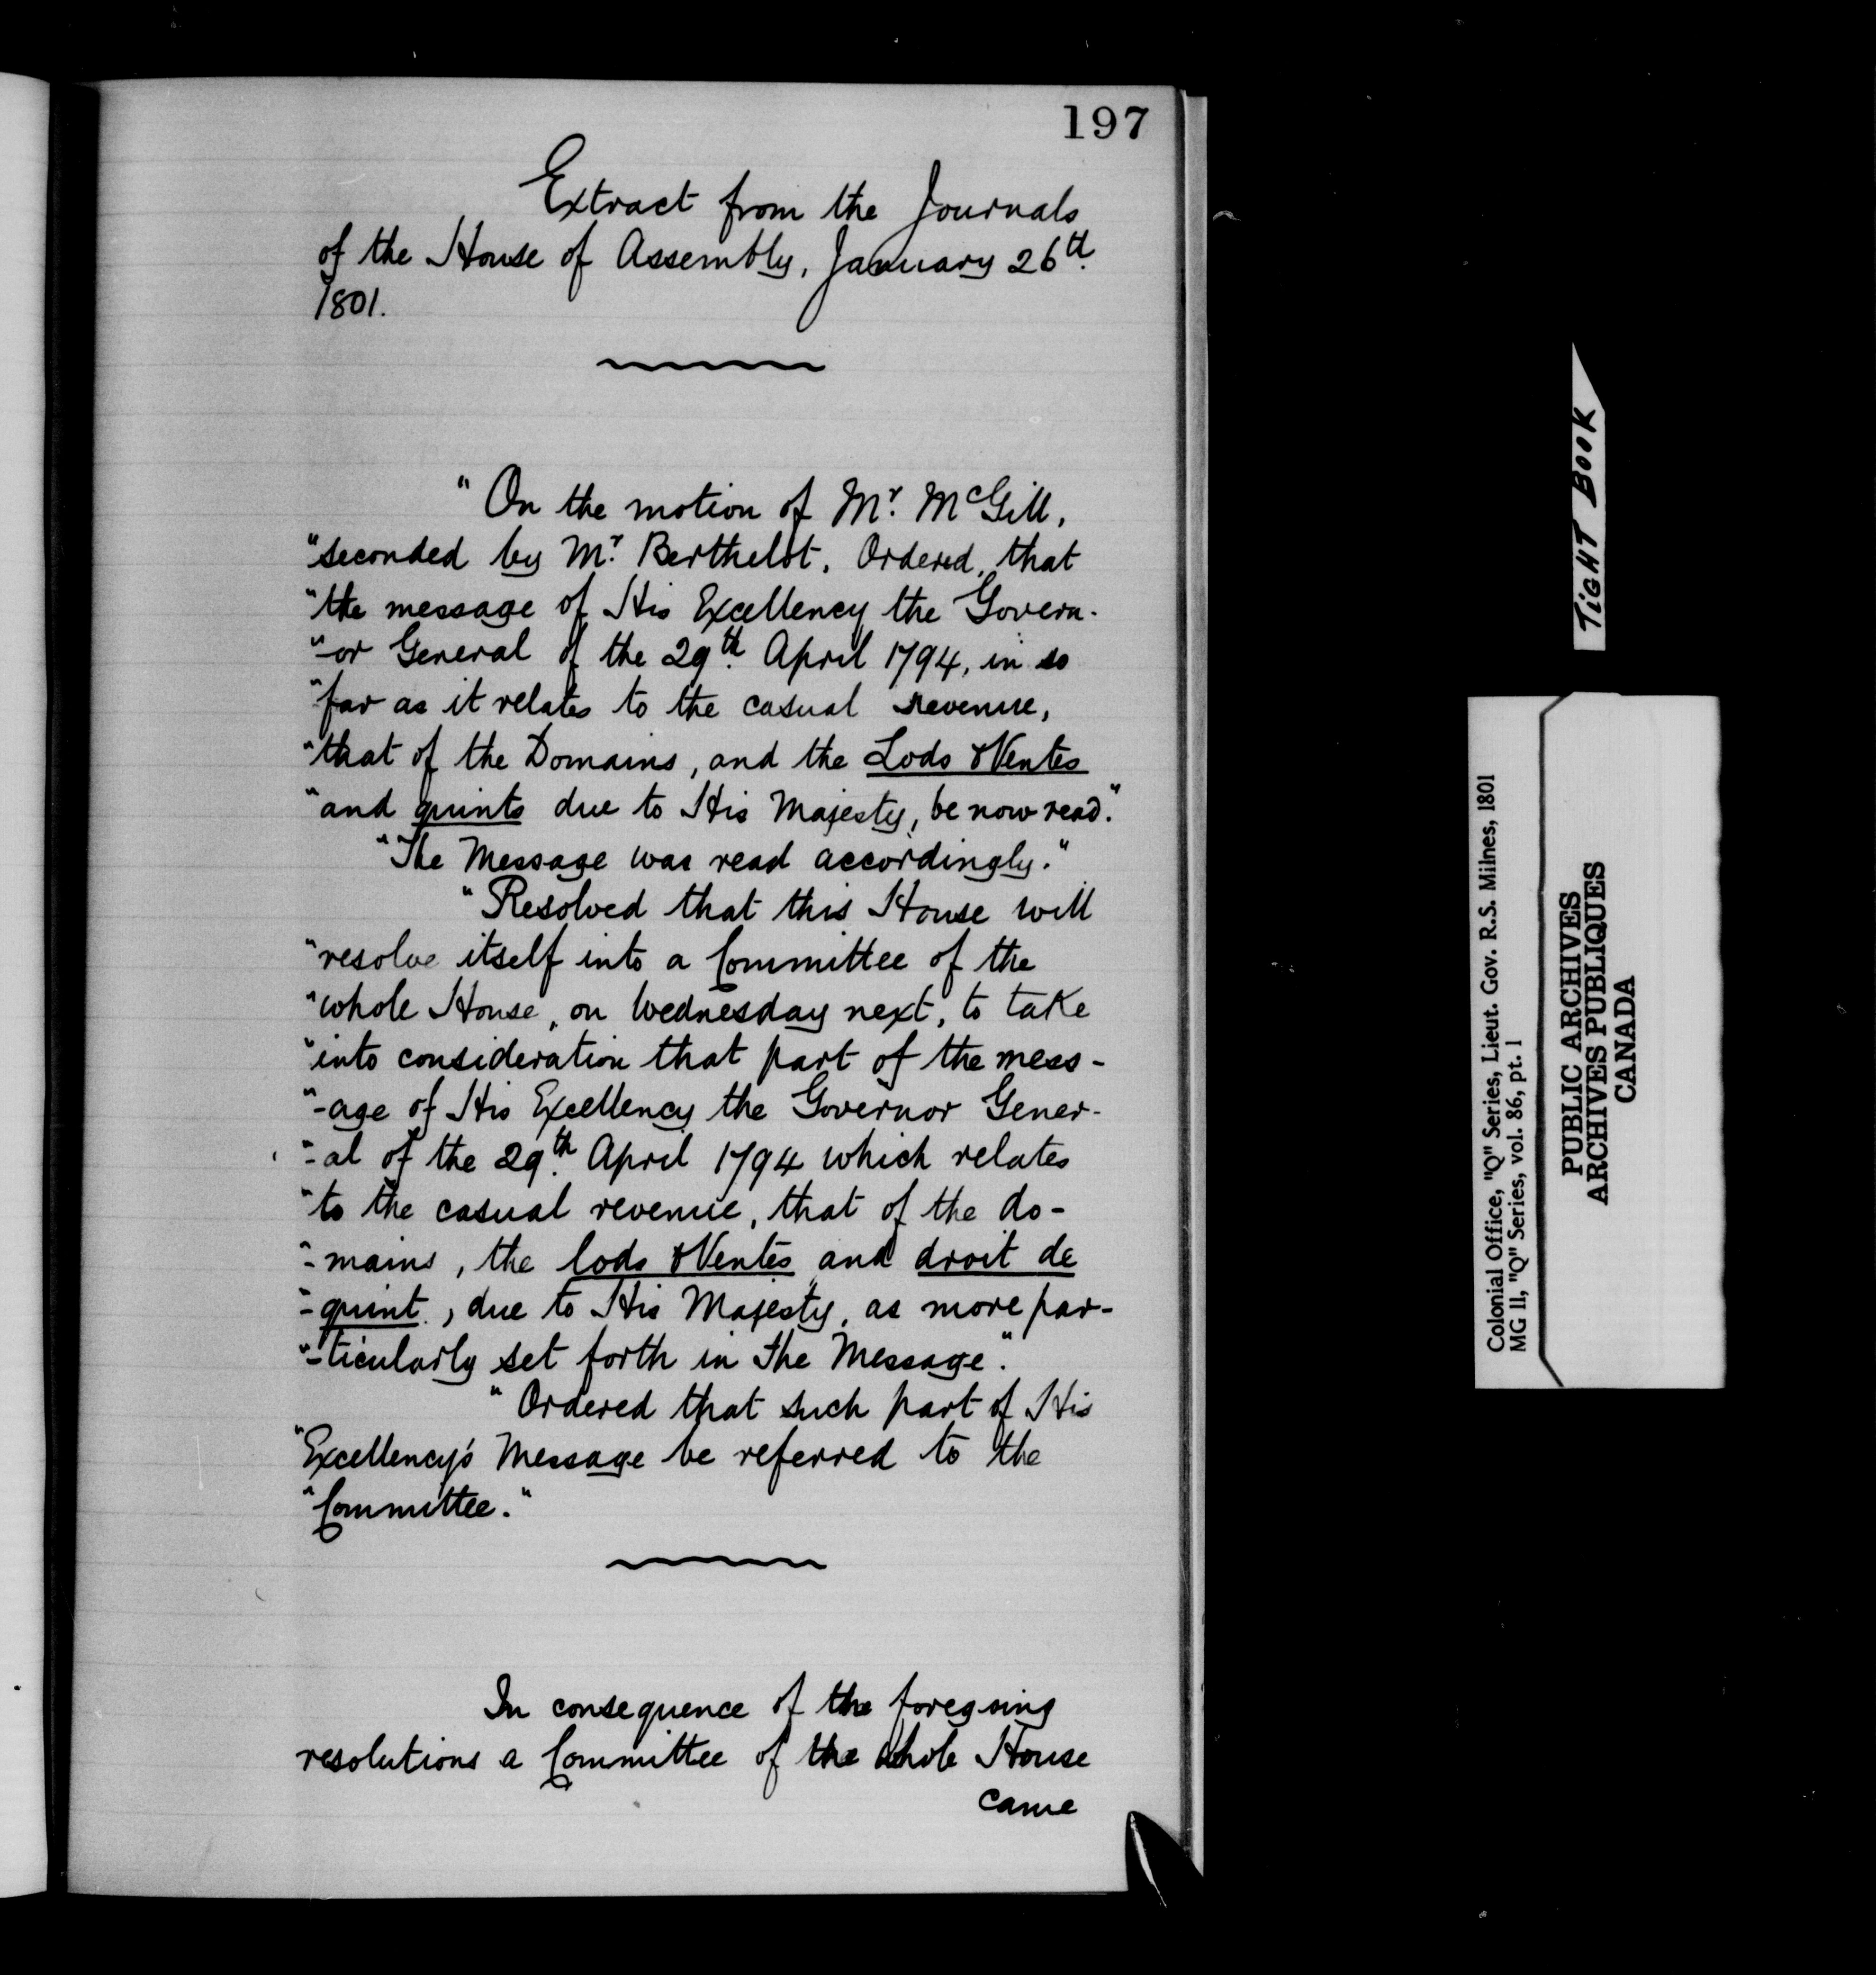 197
Extract from the Journals
of the House of Assembly, January 26th.
1801.
"On the motion of Mr. McGill,
"seconded by Mr. Berthelot. Ordered, that
"the message of His Excellency the Govern-
"-or General of the 29th. April 1794, in so
"far as it relates to the casual revenue,
"that of the Domains, and the Lods & Ventes
"and quints due to His Majesty, be now read."
"The Message was read accordingly."
"Resolved that this House will
"resolve itself into a Committee of the
"whole House, on Wednesday next, to take
"into consideration that part of the mess-
"-age of His Excellency the Governor Gener-
"-al of the 29th. April 1794 which relates
"to the casual revenue, that of the do-
"-mains, the lods & Ventes and droit de
"-quint, due to His Majesty, as more par-
"-ticularly set forth in the Message."
"Ordered that such part of His
"Excellency's Message be referred to the
"Committee."
In consequence of the foregoing
resolutions a Committee of the whole House
came
TIGHT BOOK
Colonial Office, "Q" Series, Lieut. Gov. R.S. Milnes, 1801
MG 11, "Q" Series, vol. 86, pt. 1
PUBLIC ARCHIVES
ARCHIVES PUBLIQUES
CANADA